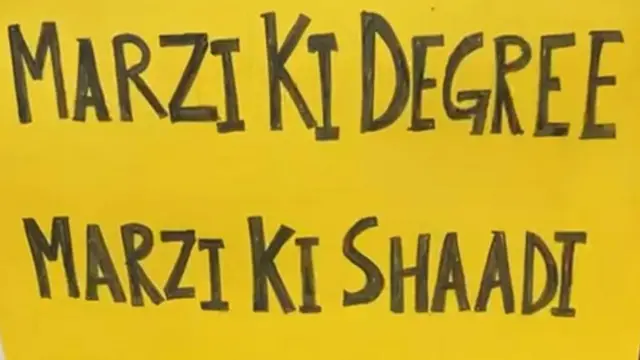 MARZI KI DEGREE
MARZI KI SHAADI